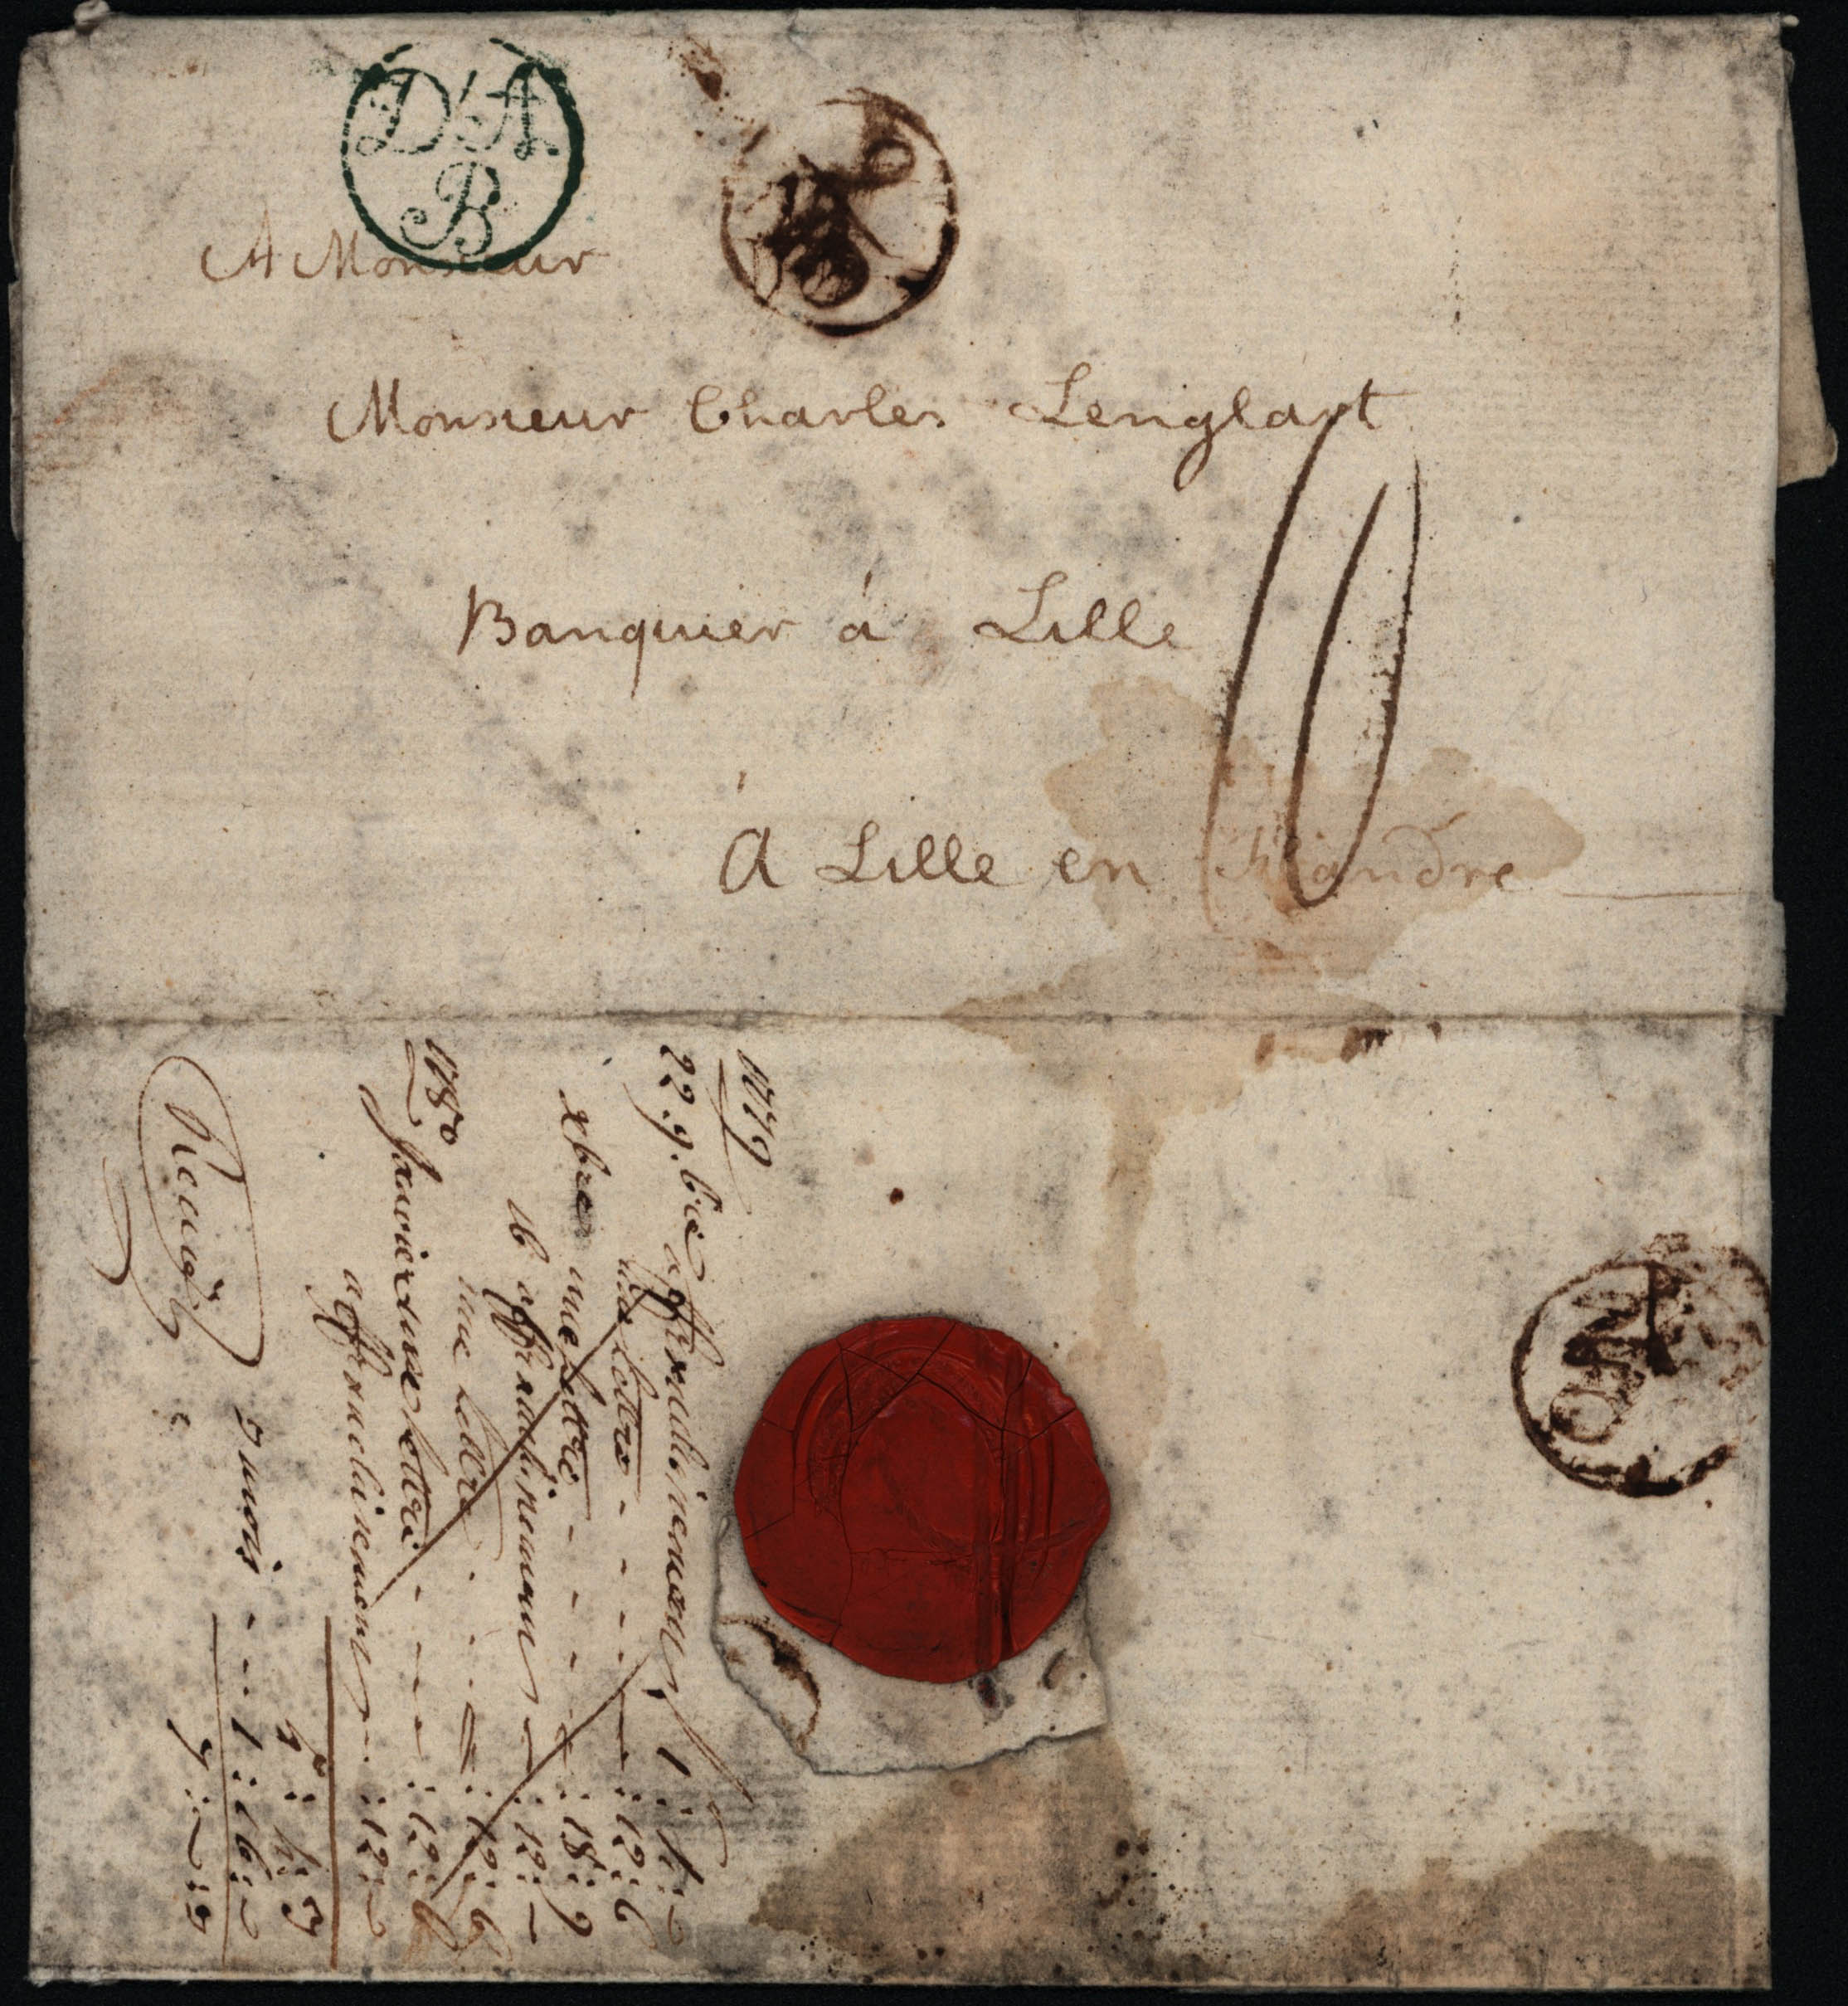 D'A
B
A Monsieur
Monsieur Charles Lenglart
Banquier á Lille
10
A Lille en flandre
1779
22. 9.bre affranchissement 1:
une Lettre - - - - :12:6
xbre une Lettre - - - - :18:9
16 affranchissement - :12:-
une Lettre :12:6
1780
Janvier une Lettre - - - :12:6
affranchissement :12:
5: :3
3 mois - - - 1:16: